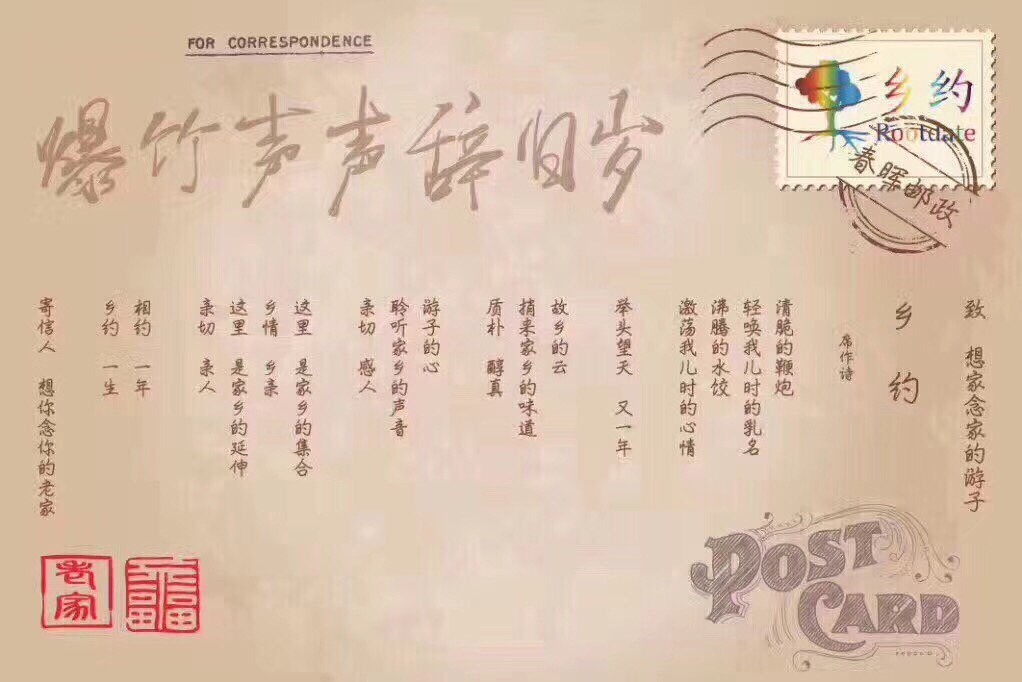 FOR CORRESPONDENCE
爆竹声声辞旧岁
乡约
Rootdate
春晖邮政
致 想家念家的游子
乡约
席作诗
清脆的鞭炮
轻唤我儿时的乳名
沸腾的水饺
激荡我儿时的心情
举头望天 又一年
故乡的云
捎来家乡的味道
质朴 醇真
游子的心
聆听家乡的声音
亲切 感人
这里 是家乡的集合
乡情 乡亲
这里 是家乡的延伸
亲切 亲人
相约一年
乡约一生
寄信人 想你念你的老家
老家
POST
CARD